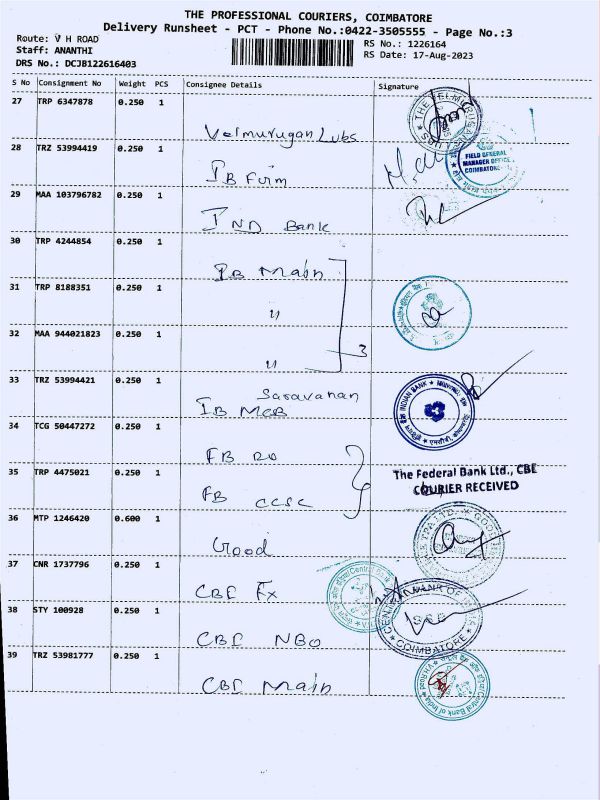 THE PROFESSIONAL COURIERS, COIMBATORE
Delivery Runsheet - PCT - Phone No.:0422-3505555 - Page No.:3
Route: V H ROAD
RS No.: 1226164
Staff: ANANTHI
RS Date: 17-Aug-2023
DRS No.: DCJB122616403
S No Consignment No Weight PCS Consignee Details Signature
27 TRP 6347878 0.250 1
Velmurugan Lubs
28 TRZ 53994419 0.250 1
FIELD GENERAL
MANAGER OFFICE
COIMBATORE
IB Firm
29 MAA 103796782 0.250 1
IND Bank
30 TRP 4244854 0.250 1
IB Main
31 TRP 8188351 0.250 1
"
32 MAA 944021823 0.250 1
"
3
33 TRZ 53994421 0.250 1
Saravanan
IB MCB
INDIAN BANK
34 TCG 50447272 0.250 1
FB RO
35 TRP 4475021 0.250 1
The Federal Bank Ltd., CBE
COURIER RECEIVED
FB CCSC
36 MTP 1246420 0.600 1
Good
37 CNR 1737796 0.250 1
CBI Fx
38 STY 100928 0.250 1
COIMBATORE
CBI NBO
39 TRZ 53981777 0.250 1
CBI Main
Central Bank of India